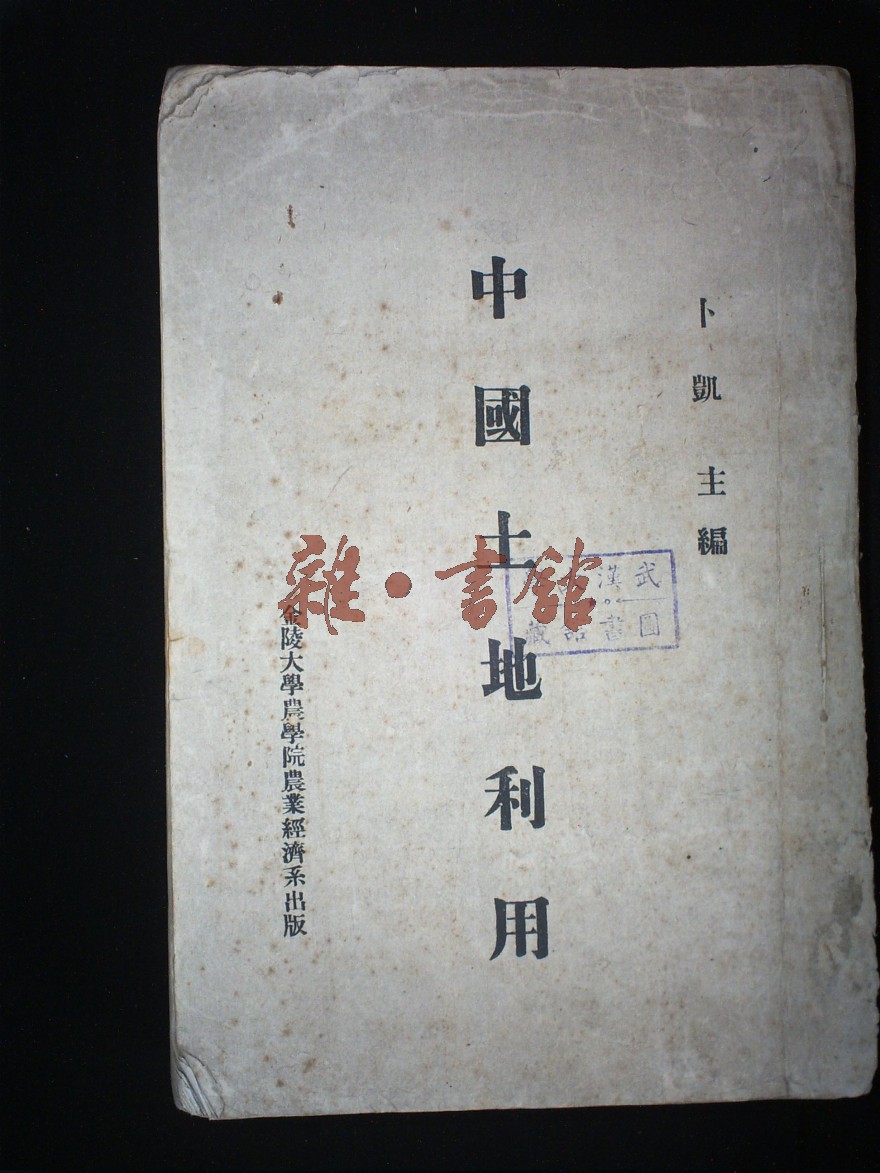 卜凱主編
中國土地利用
金陵大學農學院農業經濟系出版
雜·書館
武漢
圖書館藏